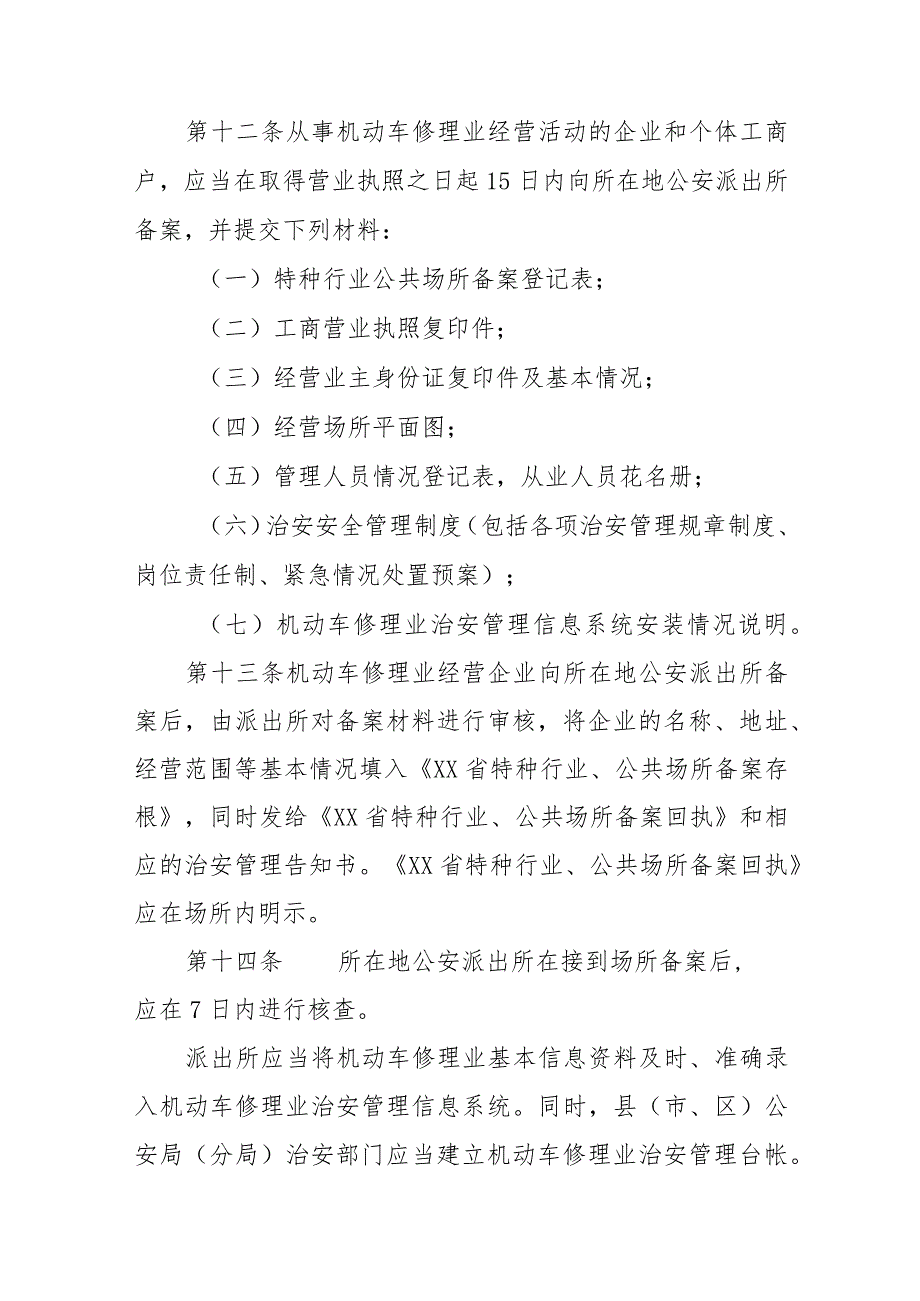 第十二条从事机动车修理业经营活动的企业和个体工商
户，应当在取得营业执照之日起 15 日内向所在地公安派出所
备案，并提交下列材料：
（一）特种行业公共场所备案登记表；
（二）工商营业执照复印件；
（三）经营业主身份证复印件及基本情况；
（四）经营场所平面图；
（五）管理人员情况登记表，从业人员花名册；
（六）治安安全管理制度（包括各项治安管理规章制度、
岗位责任制、紧急情况处置预案）；
（七）机动车修理业治安管理信息系统安装情况说明。
第十三条机动车修理业经营企业向所在地公安派出所备
案后，由派出所对备案材料进行审核，将企业的名称、地址、
经营范围等基本情况填入《XX 省特种行业、公共场所备案存
根》，同时发给《XX 省特种行业、公共场所备案回执》和相
应的治安管理告知书。《XX 省特种行业、公共场所备案回执》
应在场所内明示。
第十四条 所在地公安派出所在接到场所备案后，
应在 7 日内进行核查。
派出所应当将机动车修理业基本信息资料及时、准确录
入机动车修理业治安管理信息系统。同时，县（市、区）公
安局（分局）治安部门应当建立机动车修理业治安管理台帐。